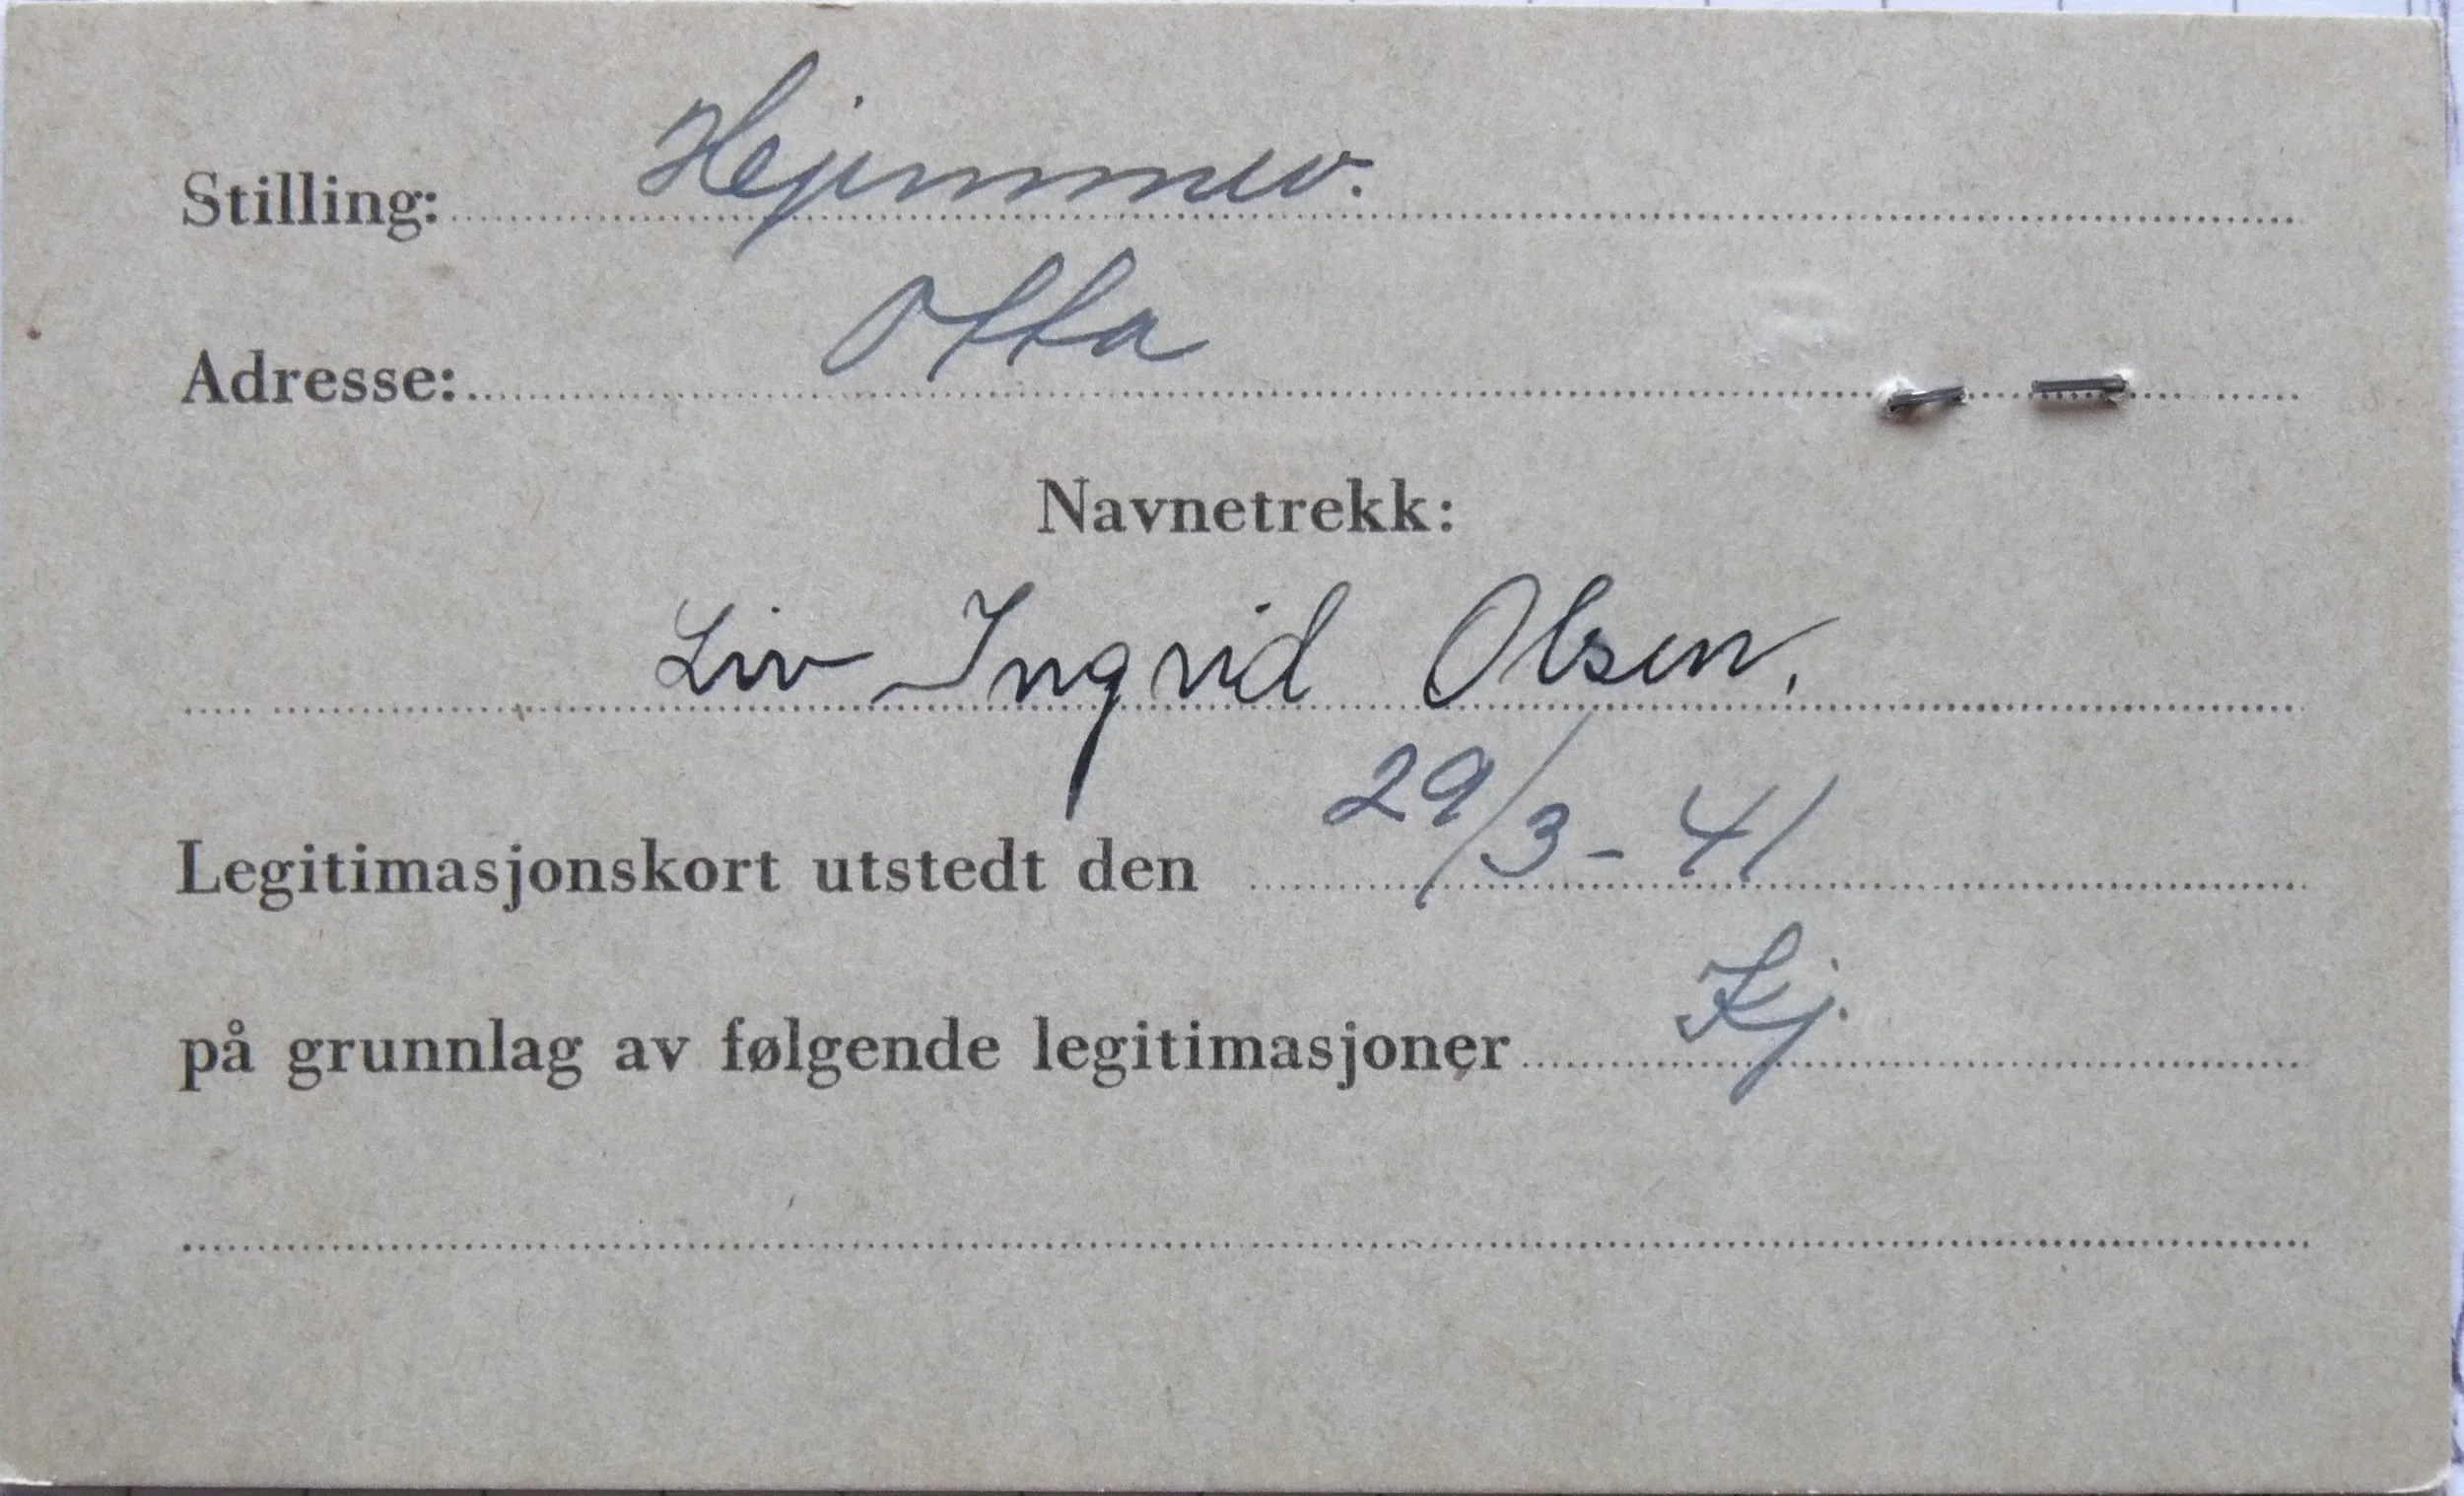 Stilling: Hejemmev.
Adresse: Otta
Navnetrekk:
Liv Ingrid Olsen.
Legitimasjonskort utstedt den 29/3-41
på grunnlag av følgende legitimasjoner Kj.